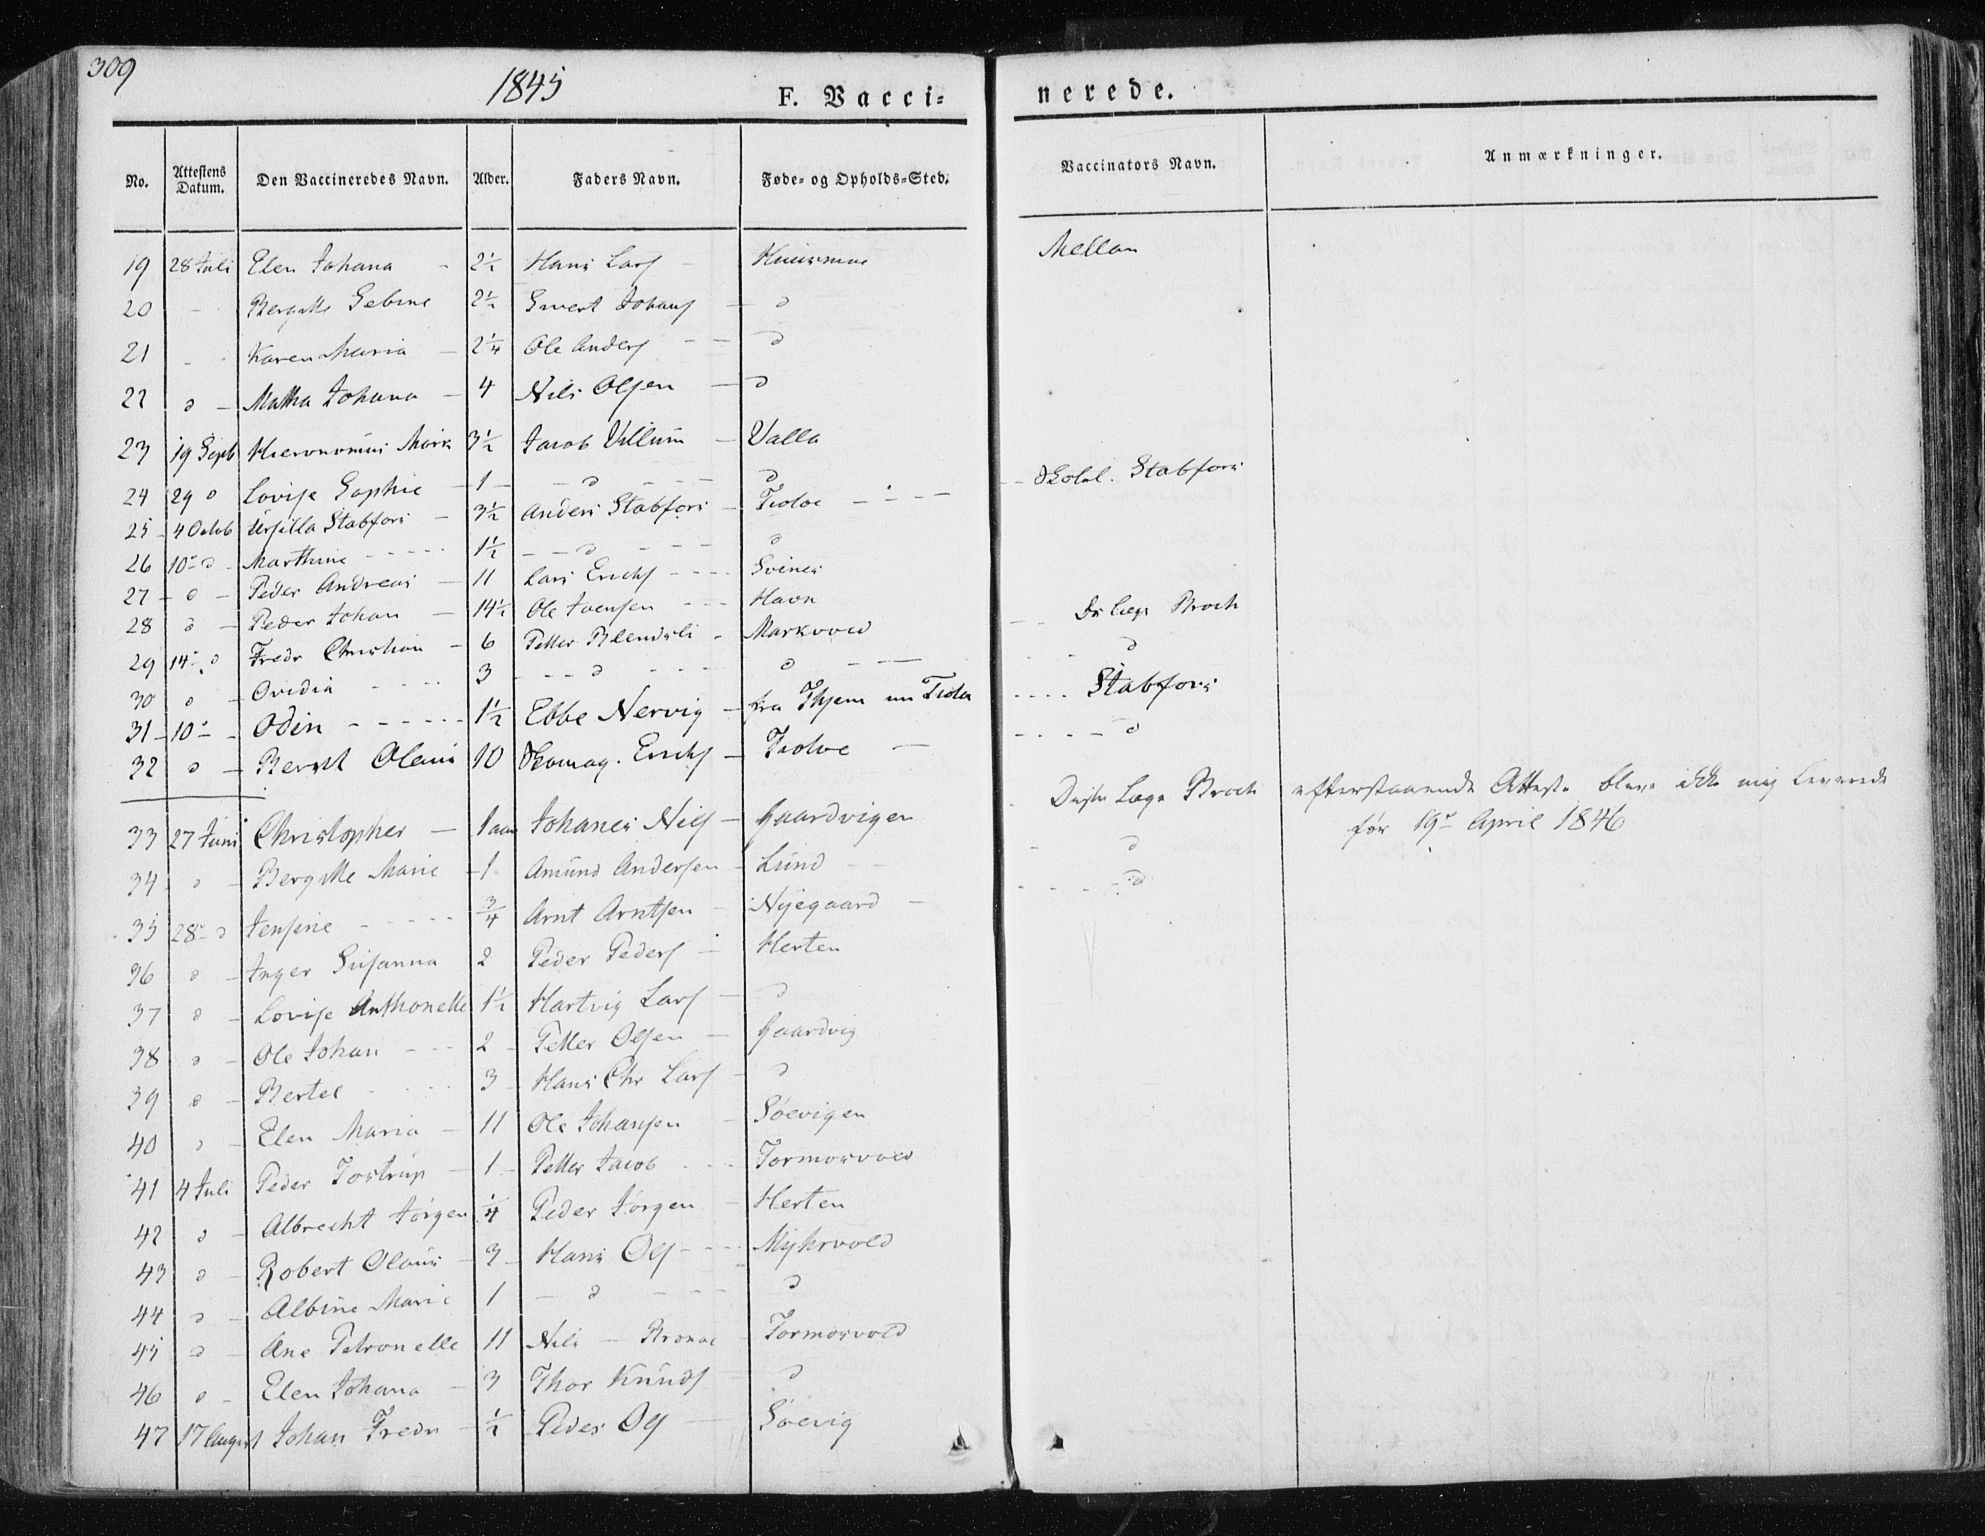 309
1845
F. Vacci= nerede.
No. Attestens Datum. Den Vaccineredes Navn. Alder. Faders Navn. Føde= og Opholds=Sted. Vaccinators Navn. Anmærkninger.
19 28 Juli Elen Johana - 2½ Hans Lars - Mellon
20 - Bergitte Sebine 2½ Sivert Johans - d
21 - Karen Maria - 2¼ Ole Anders - - d
22 d - Matha Johana - 4 Nils Olsen - d
23 19 Septb Hieronomus Mark 3½ Jacob Villum - Valla
24 29 d Lovise Sophie - 1 - - d - - - d - - Skolel. Stabfors
25 - 4 Octob Ursilla Stabfors - 3½ Anders Stabfors - Tiolve - - -
26 10 - d - Marthine - - - - - 1½ - - d - - - d
27 - d - Peder Andreas - 11 Lars Erichs - - - - Svines
28 d - Peder Johan - 14½ Ole Ivensen - - - Havn - - Ds Læge Broch
29 14 - d Fredr Christian - 6 Petter - Markvold - - d
30 d - Ovidia - - - - 3 - - - d - - - d - - -
31 - 10 - - Odin - - - - - - 1½ Ebbe Nervig - fra Thjem Tiola - - - - Stabfors
32 d - Bernt Olaus 10 Erichs - Tiolve - - - - - d
33 27 Juni Christopher - 1 aar Johanes Nils - Gaardvigen - Læge Broch efterstaaende Atteste blev ikke mig leverede
før 19de April 1846
34 - d - Bergitte Marie - 1 Amund Andersen - Lund - - - d
35 28 - d Jensine - - - - - ¾ Arnt Arntsen - Nyegaard - - - - - d
36 d - Inger Susanna 2 Peder Peders - Herten
37 d - Lovise Anthonette 1½ Hartvig Lars - d
38 d - Ole Johan - - - 2 - Petter Olsen - Gaardvig
39 d - Bertel - - - - 3 - Hans Chr Lars - d
40 d - Elen Maria - 11 Ole Johansen - Søevigen
41 4 Juli Peder Tostrup - 1 - Petter Jacob - - - Formorvold
42 d - Albrecht Jørgen ¼ Peder Jørgen - Herten
43 d - Robert Olaus - 3 - Hans Ols - - - Myhrvold
44 d - Albine Marie 1 - d - - - d
45 d - Ane Petronelle 11 Nils - - Formorvold
46 d - Elen Johana - 3 Thor Knuds - d
47 17 August Johan Fredr - ½ Peder Ols - Søevig